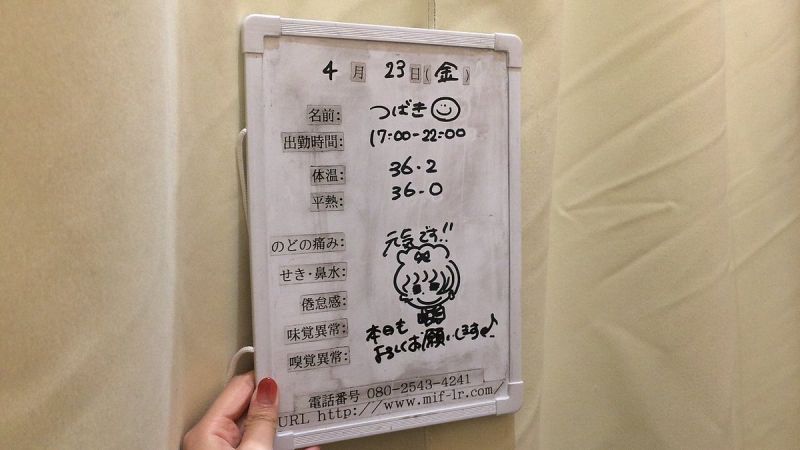 4月23日(金)
名前: つばき
出勤時間: 17:00-22:00
体温: 36.2
平熱: 36.0
のどの痛み: 元気です!!
せき・鼻水:
倦怠感:
味覚異常: 本日も
嗅覚異常: よろしくお願いします♪
電話番号 080-2543-4241
URL http://www.mif-lr.com/